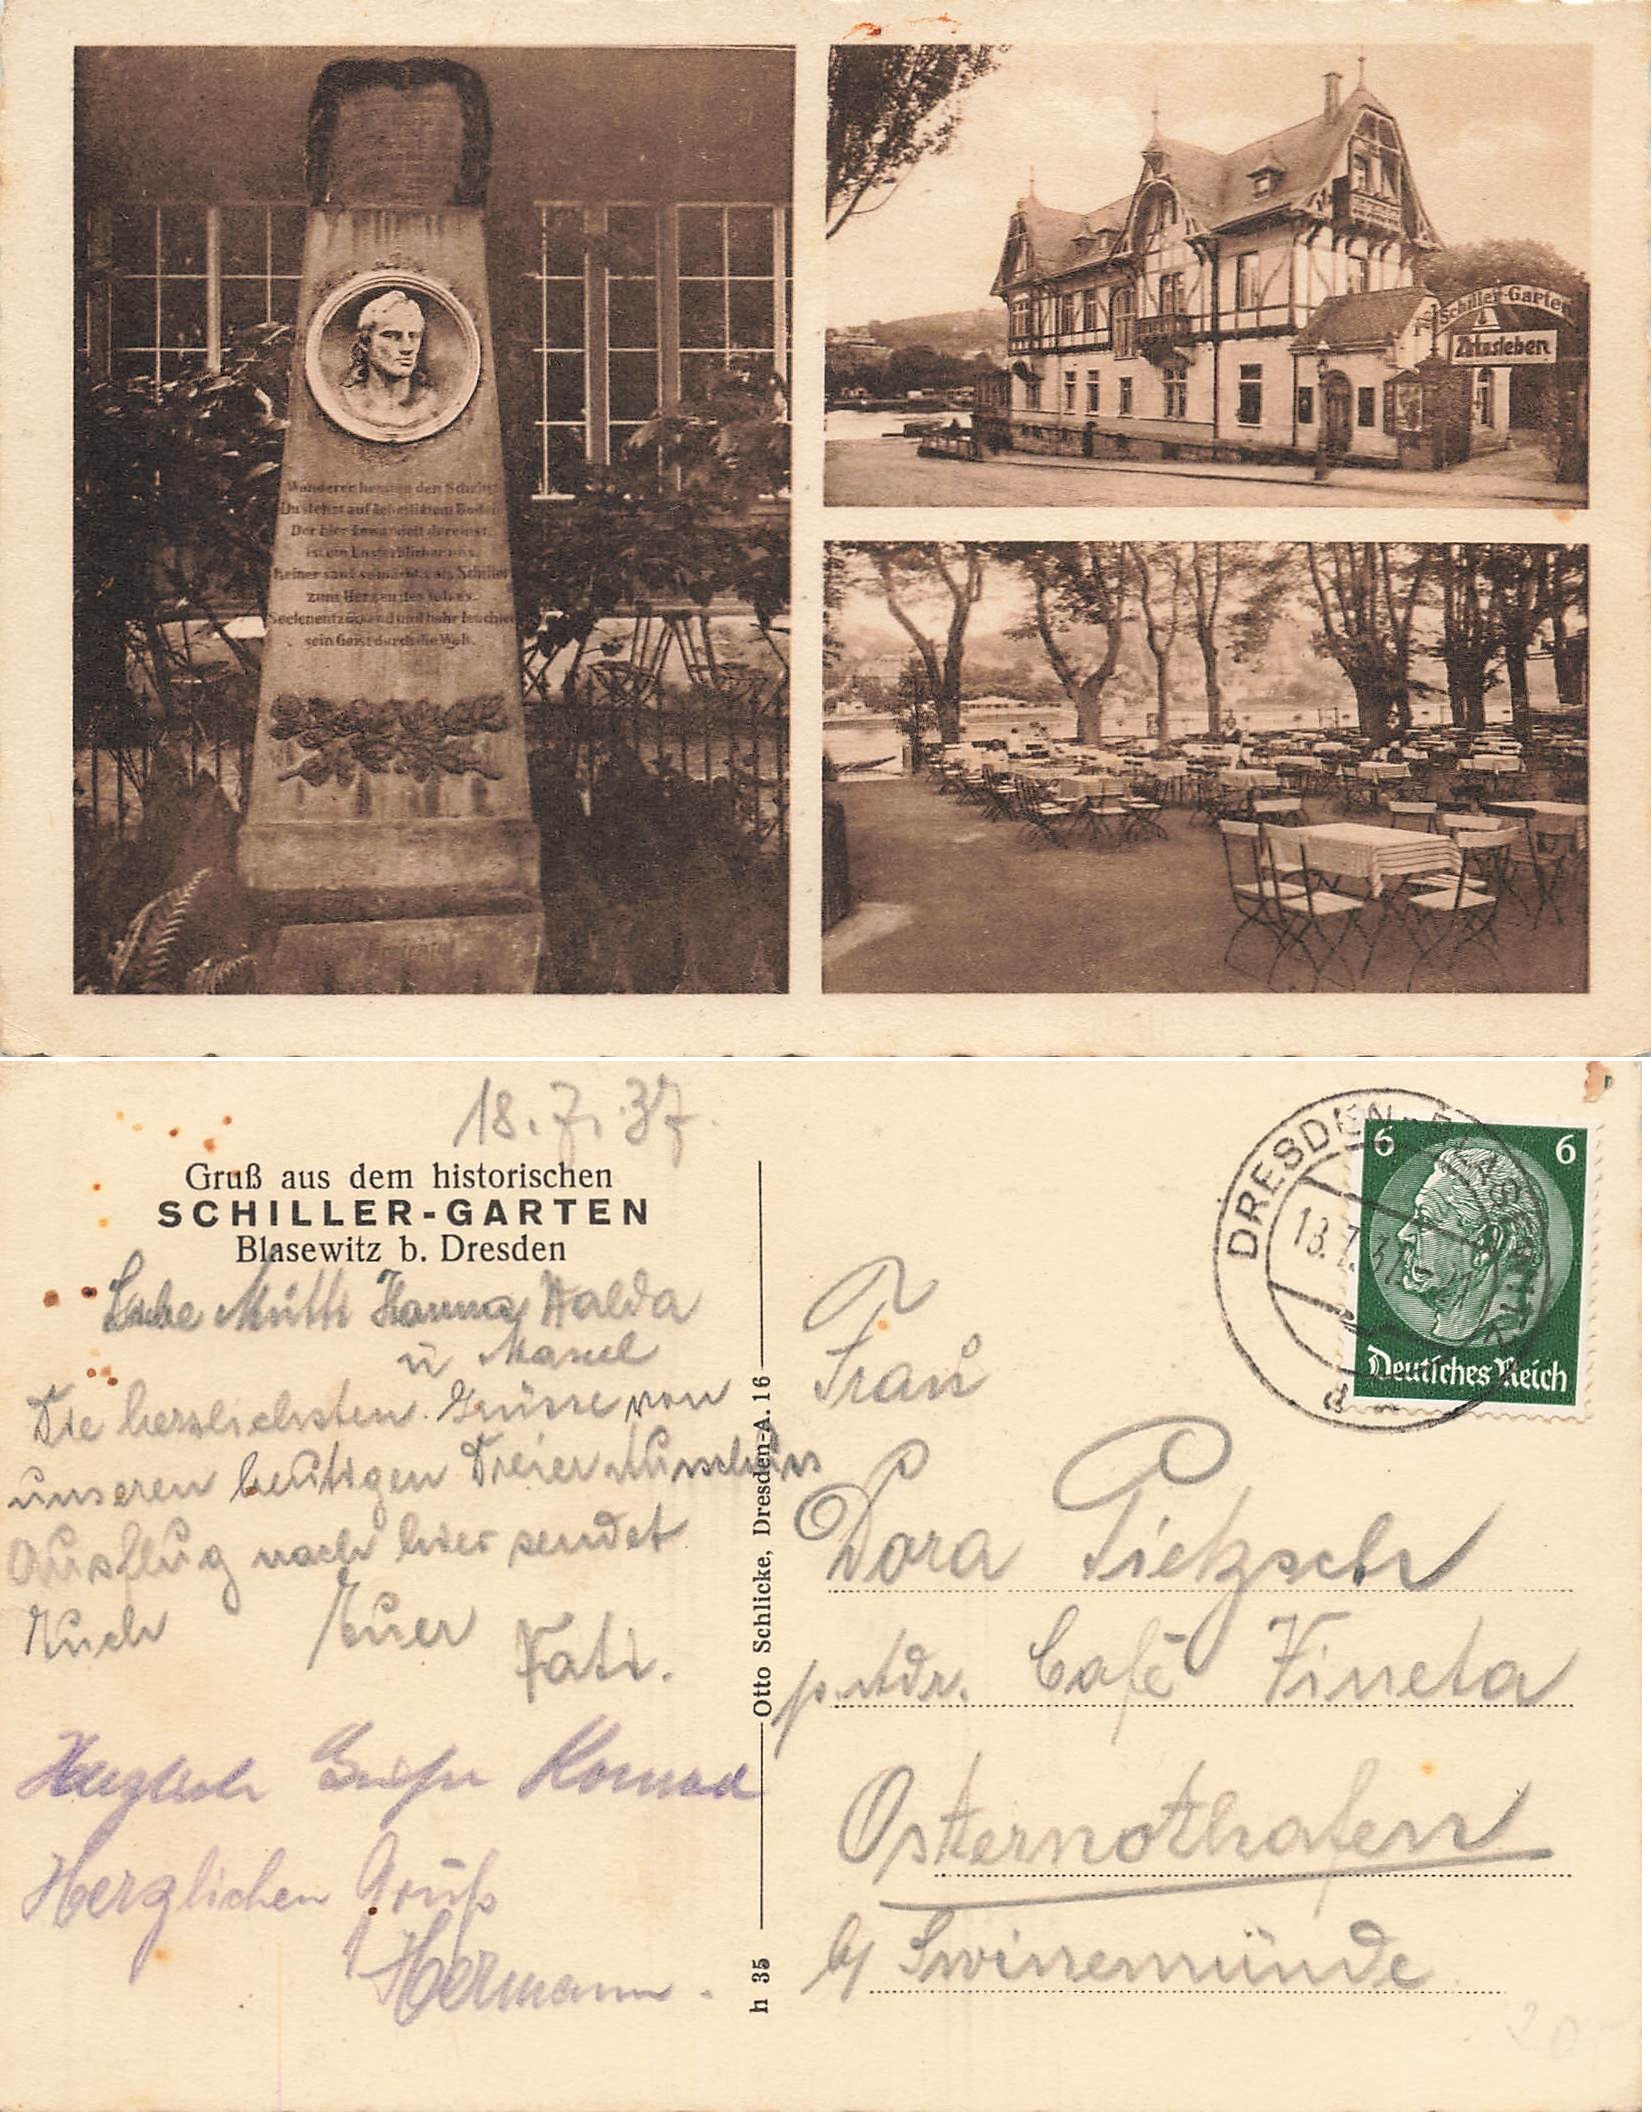 Wanderer hemme den Schritt
Du stehst auf Boden
Der hier gewandelt dereinst
ist ein Unsterblicher uns.
Keiner sang so mächtig als Schiller
zum Herzen des Volkes.
Seelenentzückend und hehr leuchtet
sein Geist durch die Welt.
Schiller-Garten
18.7.37.
Gruß aus dem historischen
SCHILLER-GARTEN
Blasewitz b. Dresden
Liebe Mutti Hanna
u
Die herzlichsten Grüsse von
unseren heutigen Dreier
Ausflug nach hier sendet
Euch Euer
Vati.
Herzliche Grüße Konrad
Herzlichen Gruß
Hermann.
Otto Schlicke, Dresden-A. 16
h 35
DRESDEN-BLASEWITZ
18.7.37
a
6 6
Deutsches Reich
Frau
Dora Pietzsch
p. Adr. Café Vineta
Osternothafen
b/ Swinemünde